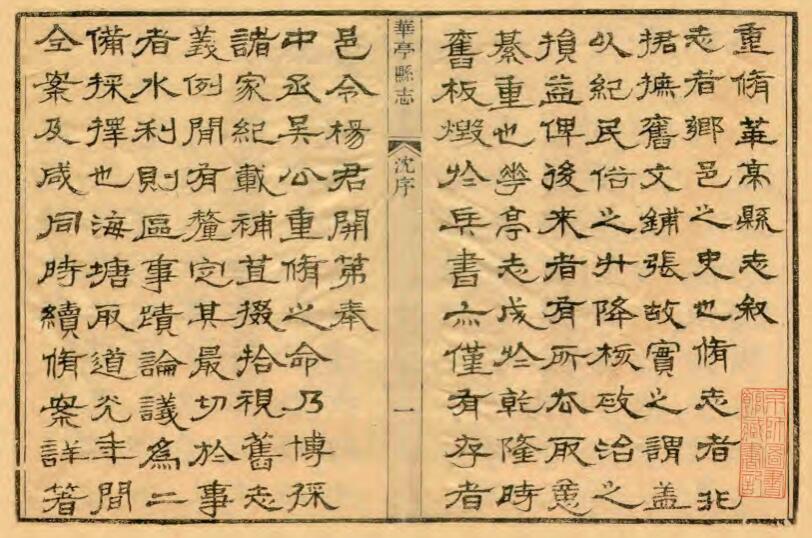 重脩華亭縣志敘
志者鄉邑之史也脩志者非
捃摭舊文鋪張故實之謂蓋
以紀民俗之升降核政治之
損益俾後来者有所厺取意
綦重也華亭志成於乾隆時
舊板燬於兵書亦僅有存者
華亭縣志
沈序
一
邑令楊君開第奉
中丞吳公重脩之命乃博採
諸家紀載補苴掇拾視舊志
義例閒有釐定其最切於事
者水利則區事蹟論議爲二
備採擇也海塘取道光年間
全案及咸同時續脩案詳著
京師圖書
館藏書記